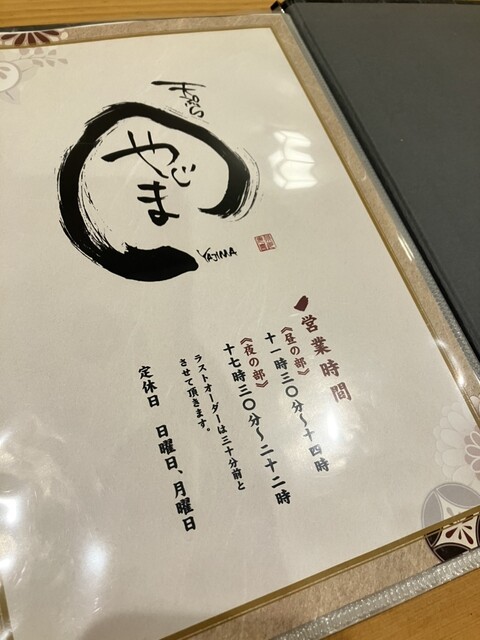 やじま
YAJIMA
営業時間
《昼の部》
十一時三〇分～十四時
《夜の部》
十七時三〇分～二十二時
ラストオーダーは三十分前と
させて頂きます。
定休日 日曜日、月曜日